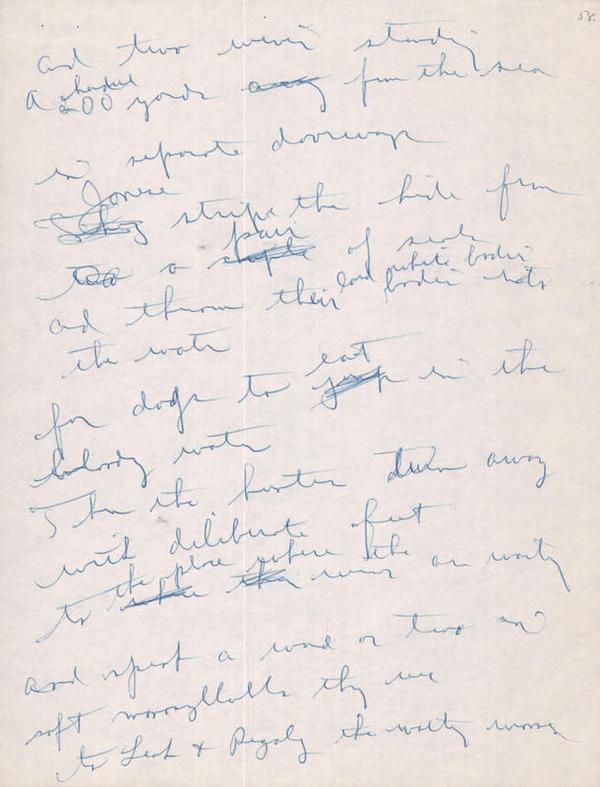 58.
and two women standing
A hundred
200 yards away from the sea
in separate doorways
Jonese
strips the hide from
pair
a couple of seals
and throws their white bodies
bodies into
the water
for dogs to eat
jump in the
bloody water
Then the hunter turn away
with deliberate feet
the place where the
to where the wives are waiting
and repeat a word or two in
soft monosyllables they use
to Leah & Regaly the waiting women